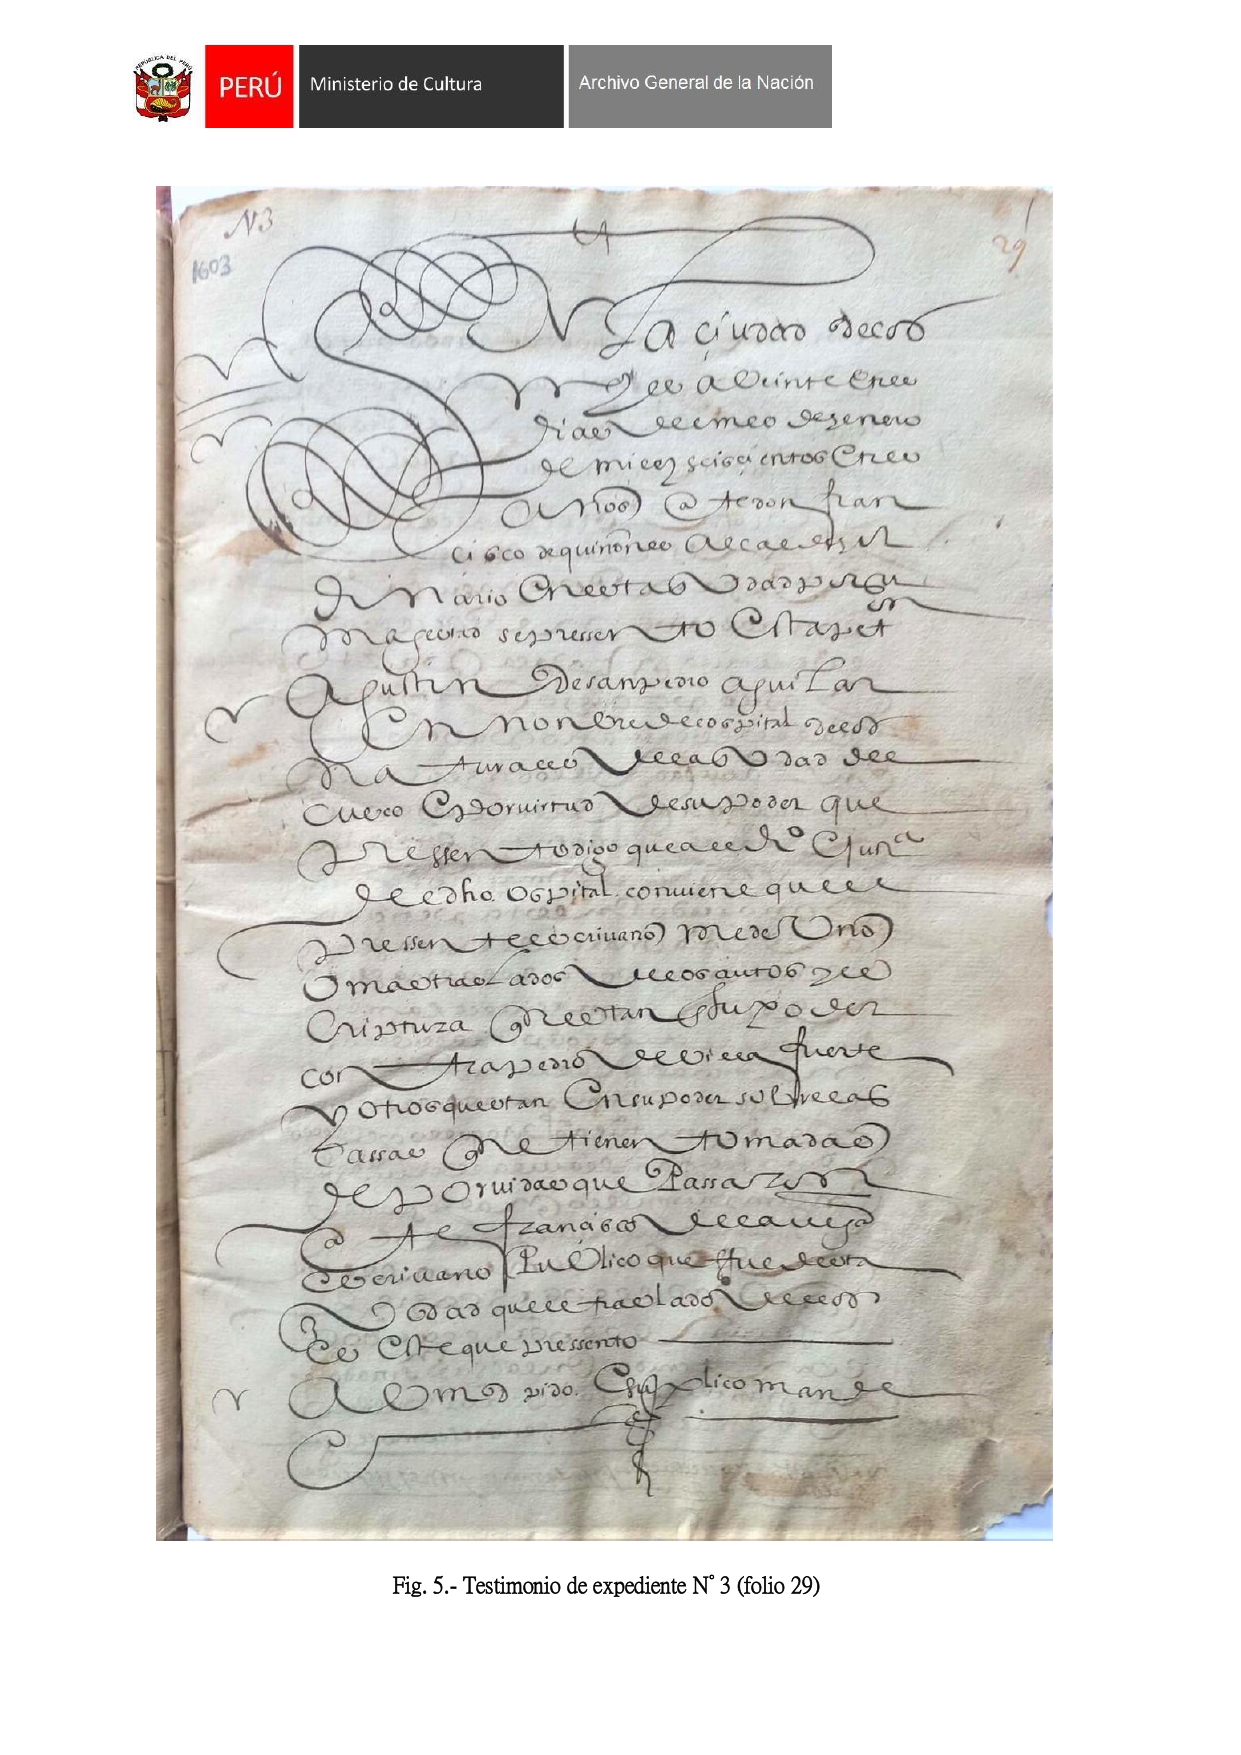 REPÚBLICA DEL PERÚ
PERÚ
Ministerio de Cultura
Archivo General de la Nación
N 3
29
1603
En la ciudad de los
Reyes a veinte e tres
dias del mes de henero
de mill y seiscientos e tres
años ante don fran
cisco de quiñones alcalde
ordinario en esta ciudad por su
magestad se pressento esta petⁿ
Agustin de san pedro aguilar
En nonbre del ospital de los
naturales de la ciudad del
cuzco e por virtud de su poder que
pressento digo que al dr̃o
del dho ospital conviene que el
pressente escrivano me de uno
o mas traslados de los autos y es
criptura que estan en su poder
contra pedro de villa fuerte
y otros que estan en su poder sobre las
cassas que tienen tomadas
de por vidas que Passaron
ante francisco de la vega
escrivano Publico que fue desta
ciudad que el traslado dellos
es este que pressento
A Vmd pido e suplico mande
Fig. 5.- Testimonio de expediente N° 3 (folio 29)